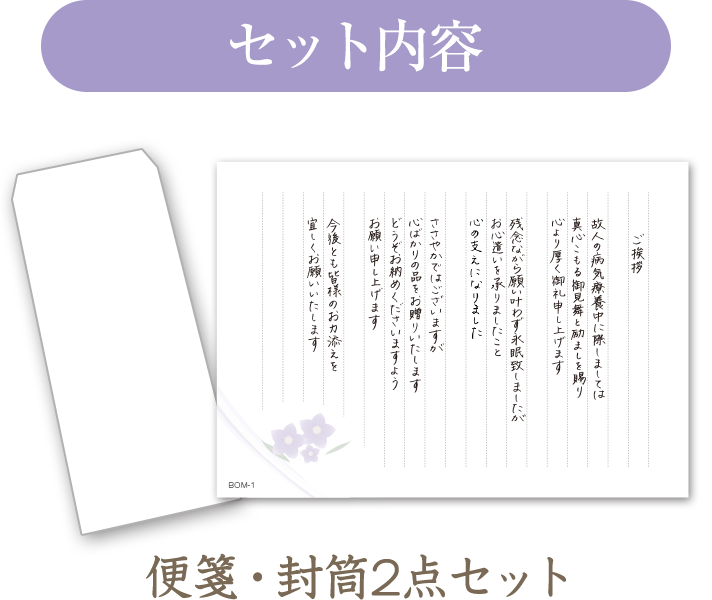 セット内容
ご挨拶
故人の病気療養中に際しましては
真心こもる御見舞と励ましを賜り
心より厚く御礼申し上げます
残念ながら願い叶わず永眠致しましたが
お心遣いを承りましたこと
心の支えになりました
ささやかではございますが
心ばかりの品をお贈りいたします
どうぞお納めくださいますよう
お願い申し上げます
今後とも皆様のお力添えを
宜しくお願いいたします
BOM-1
便箋・封筒2点セット